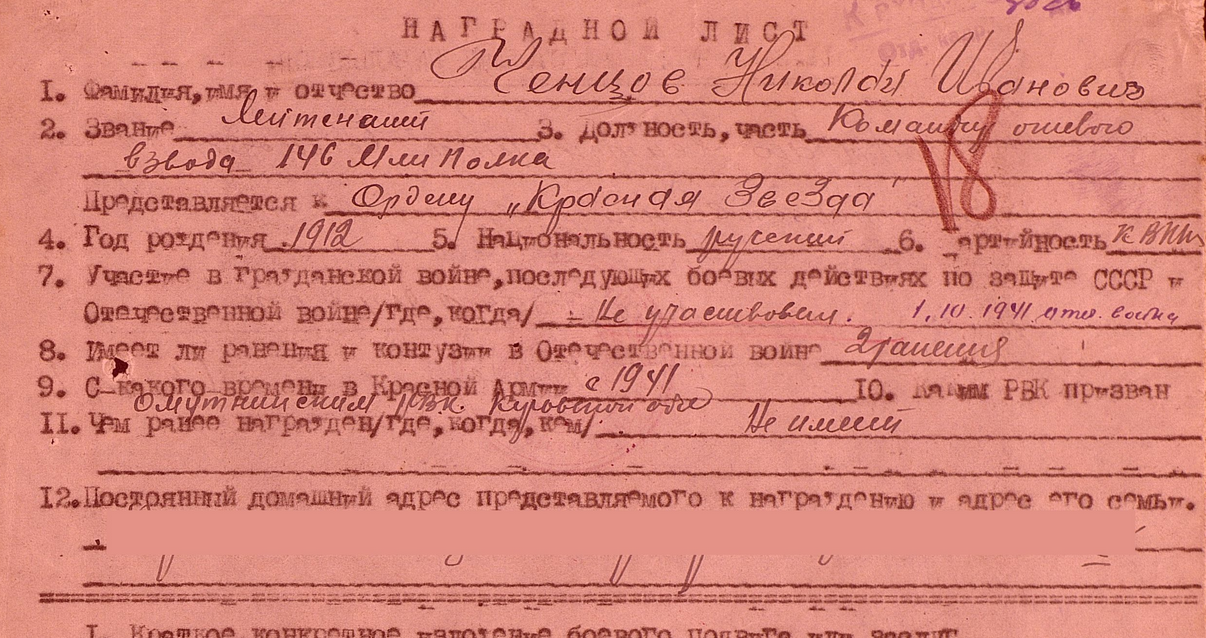 НАГРАДНОЙ ЛИСТ
1. Фамилия, имя и отчество Женцов Николай Иванович
2. Звание Лейтенант 3. Должность, часть Командир огневого
взвода 146 Мин Полка
Представляется к Ордену „Красная Звезда"
18
4. Год рождения 1912 5. Национальность русский 6. артийность К ВКП
7. Участие в Гражданской войне, последующих боевых действиях по защите СССР и
Отечественной войне/где, когда/ - Не участвовал. 1.10.1941 отеч. война
8. Имеет ли ранения и контузии в Отечественной войне 2 ранения
9. С какого времени в Красной Армии с 1941 10. Каким РВК призван
Омутнинским РВК Кировской обл
11. Чем ранее награжден/где, когда, кем/ Не имеет
12. Постоянный домашний адрес представляемого к награждению и адрес его семьи.
I. Краткое конкретное изложение боевого подвига или заслуг